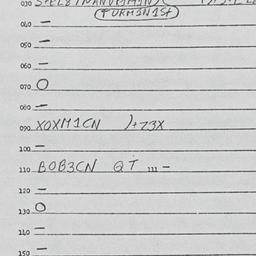 030
(TURM3N1St)
040 —
050 —
060 —
070 O
080 —
090 XOXM1CN )+73X
100 —
110 BOB3CN QT III –
120 —
130 O
140 —
150 —